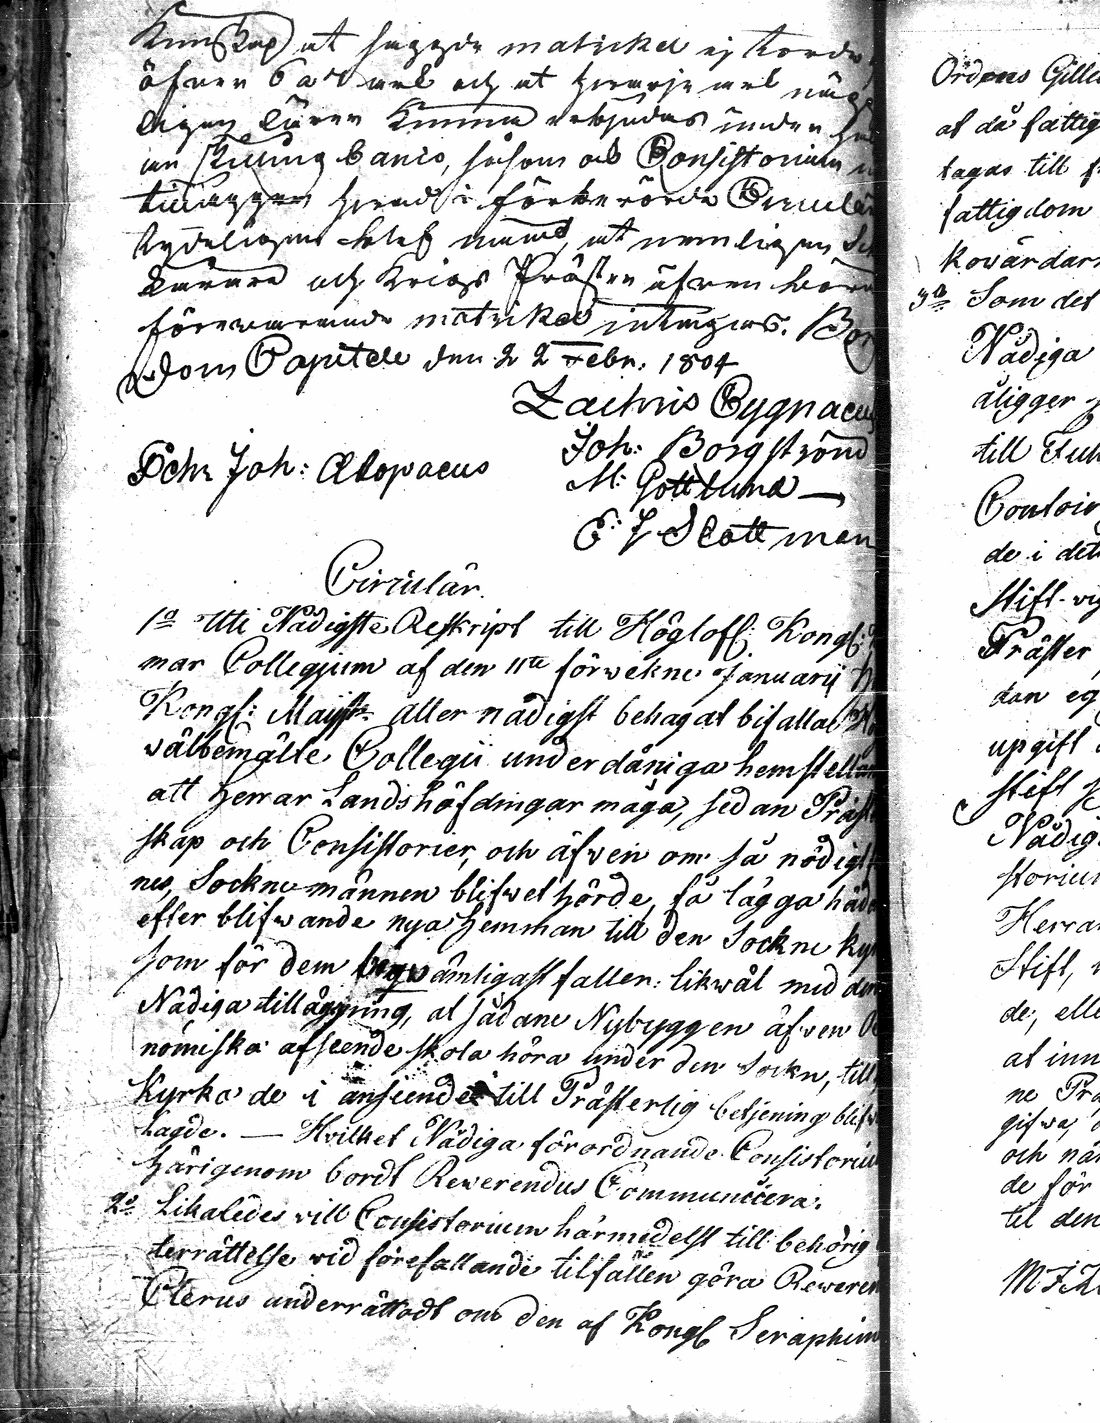 Kunskap at sagde matrikel ej torde
öfver 6 a7 ark och at hwarje ark
lärer kunna erbjudas under
en skilling banco, såsom ock Consistorium
tillägger hwad i förberörde Circulär
tydeligen blef nämnd, at nemligen
och Krigs Präster äfwen böra
förewarande matrikel intagas. Bor
Dom Capitele den 22 Febr. 1804
Zachris Cygnaeus
Joh: Borgström
Pehr Joh: Alopaeus
M: Gottlund
E: J Slottman
Circulär.
1o Uti Nådigste Reskript till Höglofl: Kongl:
mar Collegium af den 11te förwekne Januarij
Kongl: Maijst: aller nådigst behagat bifalla
wälbemälte Collegii underdåniga hemställan
att Herrar Landshöfdingar måga, sedan Präst
skap och Consistorier, och äfven om så nödigt
nes, Sockne männen blifwet hörde, få lägga häd
efter blifwande nya Hemman till den Sockne kyr
som för dem beqwämligast faller: likwäl med den
Nådiga tilläggning, at sådane Nybyggen äfven Oe
nomiska afseende skola höra under den Sockn, till
Kyrka de i anseende till Prästerlig betjening blifw
Lagde. — Hvilket Nådiga förordnande Consistorium
härigenom bordt Rewerendus Communicera.
2o Likaledes will Consistorium härmedelst till behörig
terrättelse wid förefallande tilfällen göra Reweren
Clerus underrättadt om den af Kongl Seraphim
Ordens Gille
at då fattig
tagas till
fattigdom
kovärdar
3o Som det
Nådiga
åligger
till
de i det
Stift
Präster
dan eg
upgift
stift
Nådig
storium
Herrar
Stift,
de, elle
at inn
ne Prä
gifwa,
och när
de för
til den